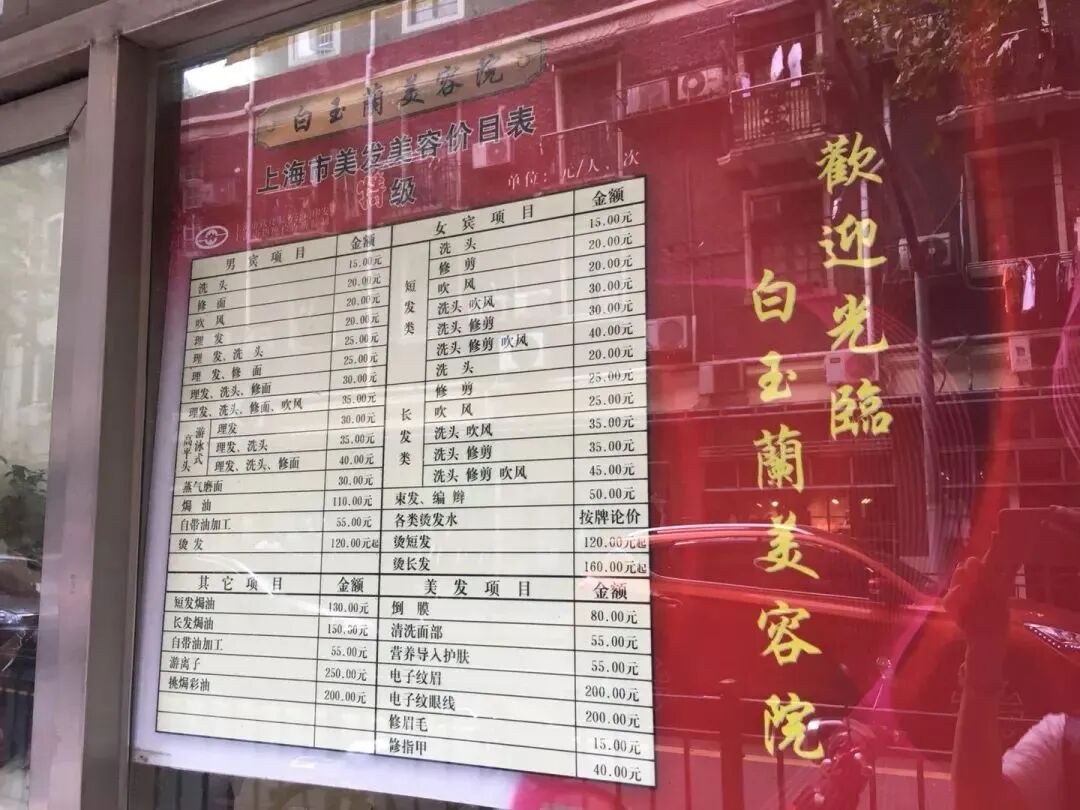 白玉蘭美容院
上海市美发美容价目表
特级
单位：元/人、次
男宾项目 金额
洗头 15.00元
修面 20.00元
吹风 20.00元
理发 20.00元
理发、洗头 25.00元
理发、修面 25.00元
理发、洗头、修面 30.00元
理发、洗头、修面、吹风 35.00元
高平头
游泳式
理发 30.00元
理发、洗头 35.00元
理发、洗头、修面 40.00元
蒸气磨面 30.00元
焗油 110.00元
自带油加工 55.00元
烫发 120.00元起
女宾项目 金额
短发类
洗头 15.00元
修剪 20.00元
吹风 20.00元
洗头 吹风 30.00元
洗头 修剪 30.00元
洗头 修剪 吹风 40.00元
长发类
洗头 20.00元
修剪 25.00元
吹风 25.00元
洗头 吹风 35.00元
洗头 修剪 35.00元
洗头 修剪 吹风 45.00元
束发、编辫 50.00元
各类烫发水 按牌论价
烫短发 120.00元起
烫长发 160.00元起
其它项目 金额
短发焗油 130.00元
长发焗油 150.00元
自带油加工 55.00元
游离子 250.00元
挑焗彩油 200.00元
美发项目 金额
倒膜 80.00元
清洗面部 55.00元
营养导入护肤 55.00元
电子纹眉 200.00元
电子纹眼线 200.00元
修眉毛 15.00元
修指甲 40.00元
歡迎光臨
白玉蘭美容院